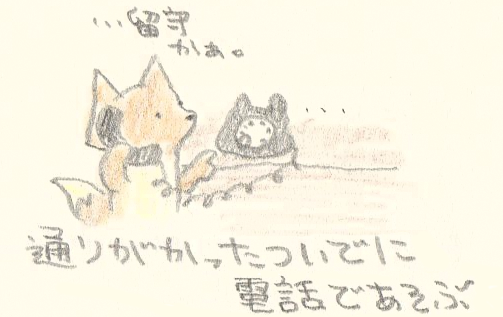 …留守
かぁ。
...
通りがかったついでに
電話であそぶ